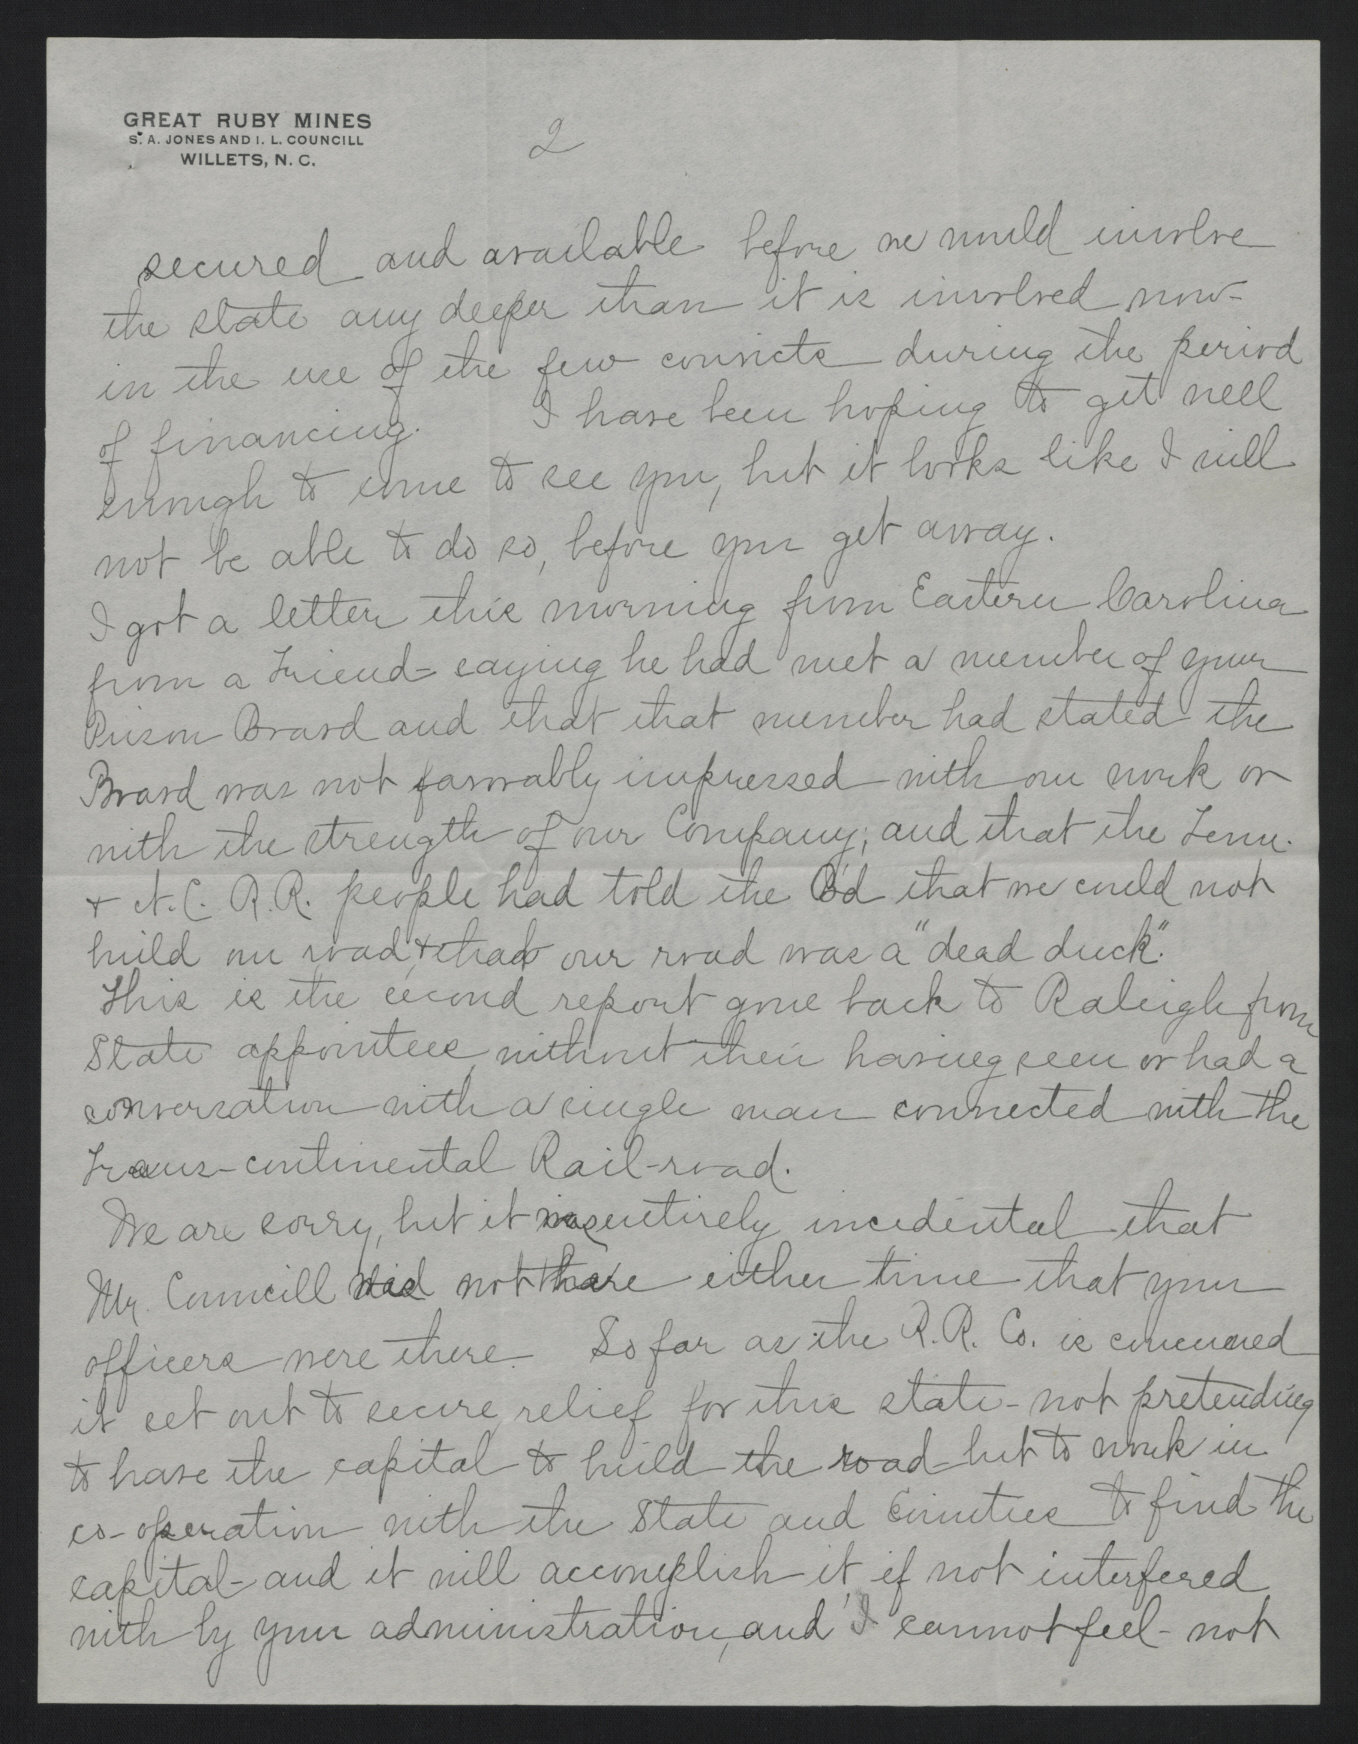 GREAT RUBY MINES
S. A. JONES AND I. L. COUNCILL
WILLETS, N. C.
2
secured and available before we would involve
the state any deeper than it is involved now-
in the use of the few convicts during the period
of financing. I have been hoping to get well
enough to come to see you, but it looks like I will
not be able to do so, before you get away.
I got a letter this morning from Eastern Carolina
from a Friend- saying he had met a member of your
Prison Board and that that member had stated the
Board was not favorably impressed with our work or
with the strength of our Company; and that the Tenn.
& N.C. R.R. people had told the Bd that we could not
build our road, & that our road was a "dead duck".
This is the second report gone back to Raleigh from
State appointees, without their having seen or had a
conversation with a single man connected with the
Trans-continental Rail-road.
We are sorry, but it was entirely incidental that
Mr. Councill did not have either time that your
officers were there. So far as the R.R. Co. is concerned
it set out to secure relief for this state- not pretending
to have the capital to build the road- but to work in
co-operation with the State and Counties to find the
capital- and it will accomplish it, if not interfered
with by your administration, and I cannot feel- not